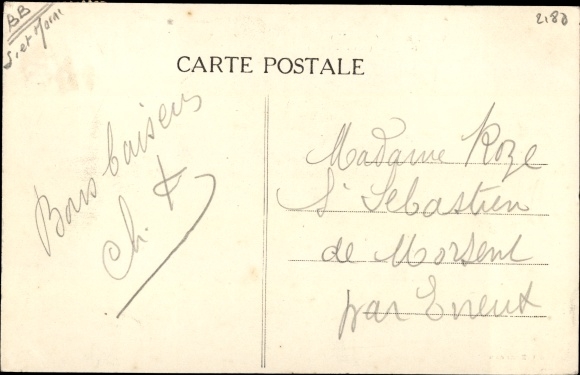 BB
S. et Marne
2180
CARTE POSTALE
Bons baisers
Ch.
Madame Roze
St Sébastien
de Morsent
par Evreux